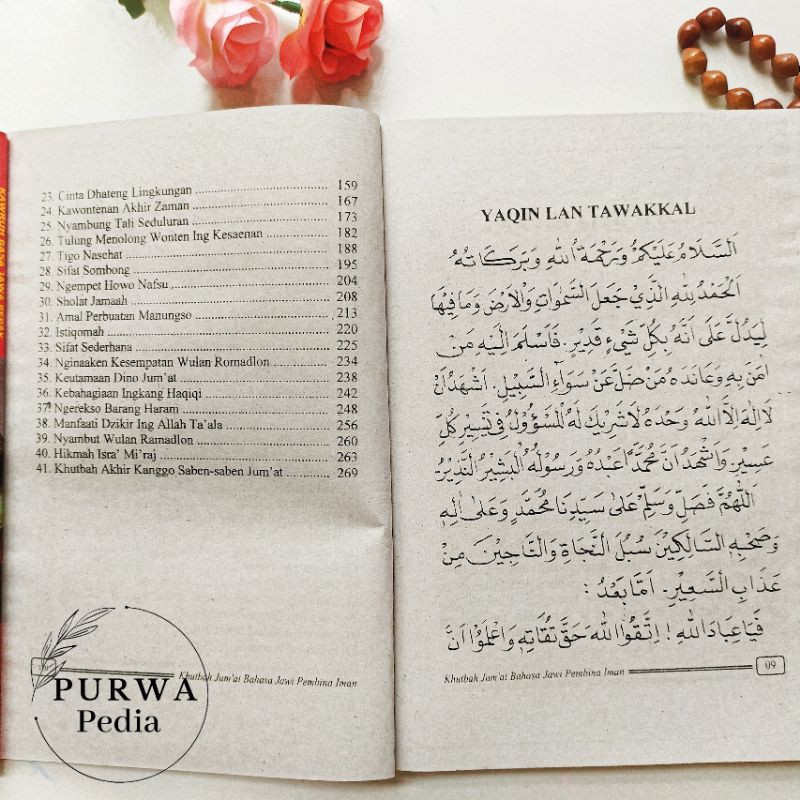 23. Cinta Dhateng Lingkungan ........ 159
24. Kawontenan Akhir Zaman ........ 167
25. Nyambung Tali Seduluran ........ 173
26. Tulung Menolong Wonten Ing Kesaenan ........ 182
27. Tigo Nasehat ........ 188
28. Sifat Sombong ........ 195
29. Ngempet Howo Nafsu ........ 204
30. Sholat Jamaah ........ 208
31. Amal Perbuatan Manungso ........ 213
32. Istiqomah ........ 220
33. Sifat Sederhana ........ 225
34. Nginaaken Kesempatan Wulan Romadlon ........ 234
35. Keutamaan Dino Jum'at ........ 238
36. Kebahagiaan Ingkang Haqiqi ........ 242
37. Ngerekso Barang Haram ........ 248
38. Manfaati Dzikir Ing Allah Ta'ala ........ 256
39. Nyambut Wulan Ramadlon ........ 260
40. Hikmah Isra' Mi'raj ........ 263
41. Khutbah Akhir Kanggo Saben-saben Jum'at ........ 269
Khutbah Jum'at Bahasa Jawi Pembina Iman
PURWA
Pedia
YAQIN LAN TAWAKKAL
اَلسَّلَامُ عَلَيْكُمْ وَرَحْمَةُ اللهِ وَبَرَكَاتُهُ
اَلْحَمْدُ لِلّٰهِ الَّذِيْ جَعَلَ السَّمٰوَاتِ وَالْاَرْضَ وَمَا فِيْهَا
لِيَدُلَّ عَلَى اَنَّهُ بِكُلِّ شَيْءٍ قَدِيْرٍ. فَاَسْلَمَ اِلَيْهِ مَنْ
اٰمَنَ بِهِ وَعَانَدَهُ مَنْ ضَلَّ عَنْ سَوَاءِ السَّبِيْلِ. اَشْهَدُ اَنْ
لَا اِلٰهَ اِلَّا اللهُ وَحْدَهُ لَا شَرِيْكَ لَهُ الْمَسْؤُوْلُ فِيْ تَيْسِيْرِ كُلِّ
عَسِيْرٍ. وَاَشْهَدُ اَنَّ مُحَمَّدًا عَبْدُهُ وَرَسُوْلُهُ الْبَشِيْرُ النَّذِيْرُ
اَللّٰهُمَّ فَصَلِّ وَسَلِّمْ عَلَى سَيِّدِنَا مُحَمَّدٍ وَعَلَى اٰلِهِ
وَصَحْبِهِ السَّالِكِيْنَ سُبُلَ النَّجَاةِ وَالنَّاجِيْنَ مِنْ
عَذَابِ السَّعِيْرِ. اَمَّا بَعْدُ :
فَيَا عِبَادَ اللهِ ! اِتَّقُوا اللهَ حَقَّ تُقَاتِهِ وَاعْلَمُوْا اَنَّ
Khutbah Jum'at Bahasa Jawi Pembina Iman
09